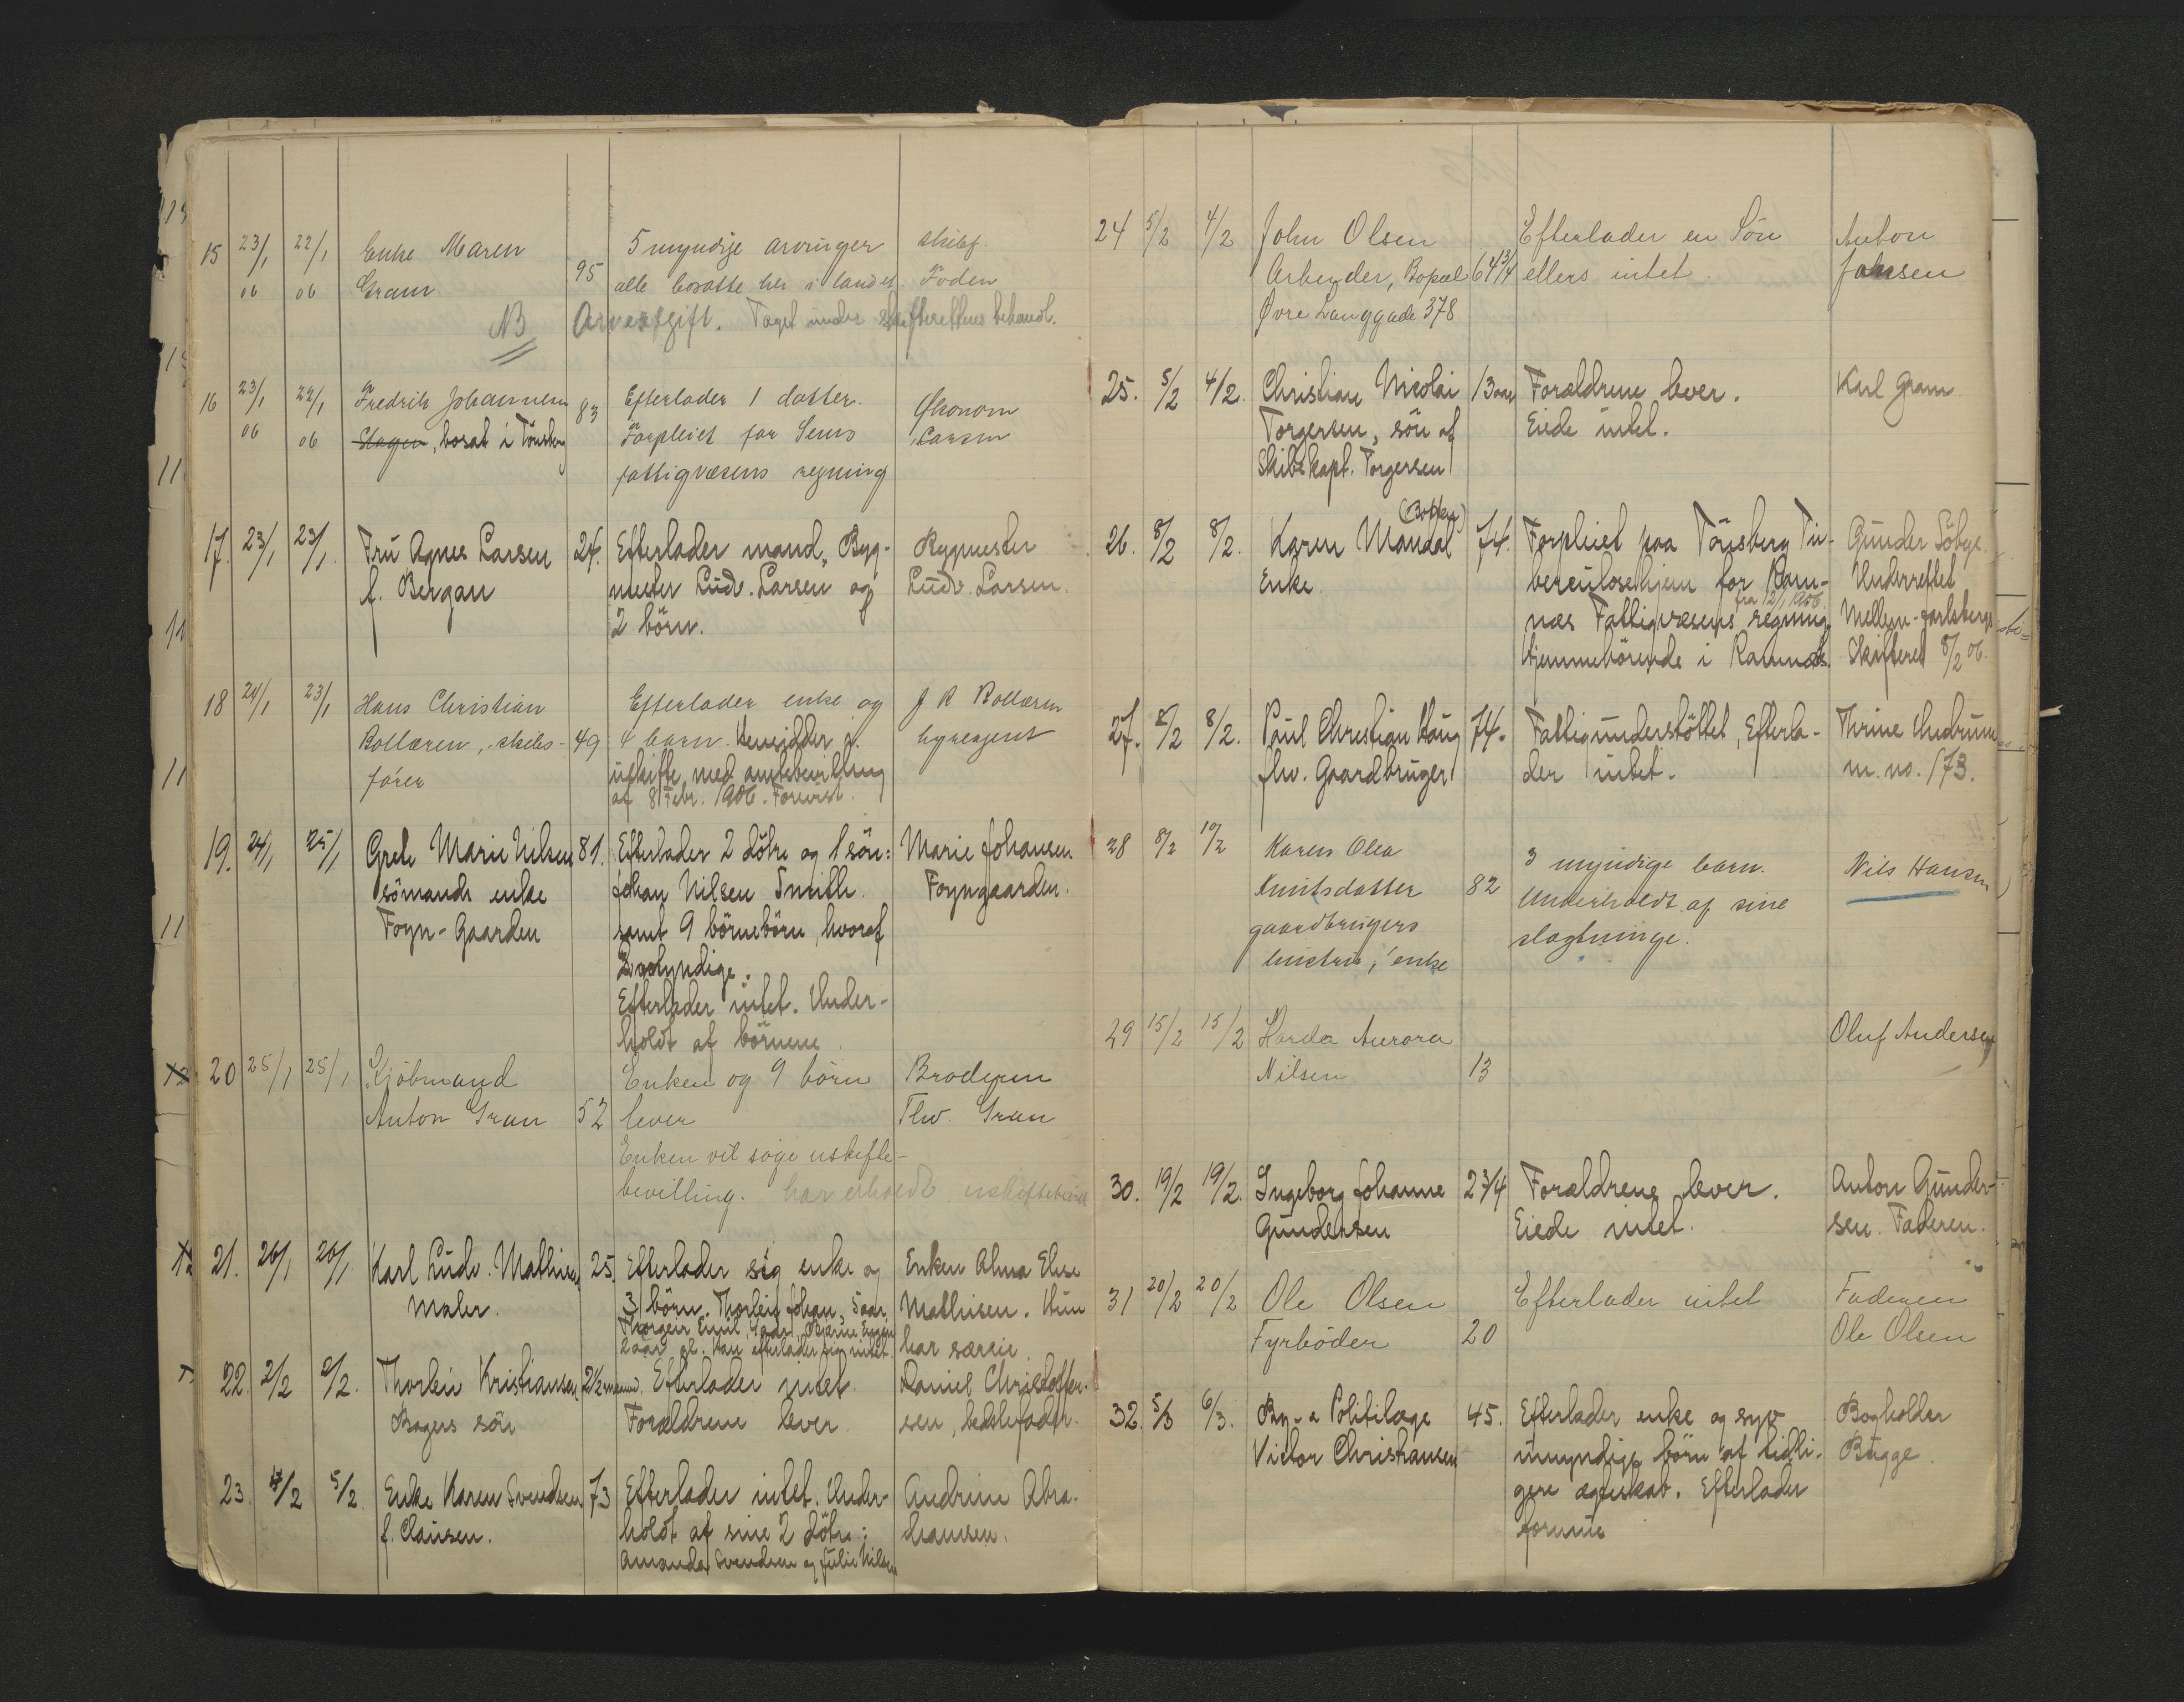 15 23/1 06 22/1 06 Enke Maren Gram 95 5 myndige arvinger alle bosatte her i landet. skibsf. Foden
NB Arveafgift. Taget under skifterettens behandl.
16 23/1 06 22/1 06 Fredrik Johannesen Slagen, bosat i Tönsberg 83 Efterlader 1 datter. Forpleiet for Sems fattigvæsens regning Økonom Larsen
17. 23/1 23/1 Fru Agnes Larsen f. Bergan 24. Efterlader mand, Bygmester Ludv. Larsen og 2 börn. Bygmester Ludv. Larsen.
18 24/1 23/1 Hans Christian Bollæren, skibsfører 49 Efterlader enke og 4 barn. Hensidder i uskifte med amtsbevilling af 8 Febr. 1906. Forevist. J R Bollæren hyreagent
19. 24/1 25/1 Grete Marie Nilsen sömands enke Foyn-Gaarden 81. Efterlader 2 dötre og 1 sön: Johan Nilsen Smith. samt 9 börnebörn, hvoraf 2 myndige. Efterlader intet. Underholdt af börnene. Marie Johansen Foyngaarden.
20 25/1 25/1 Kjöbmand Anton Gran 52 Enken og 9 börn lever Enken vil søge uskiftebevilling. har erholdt uskiftebevil Broderen Thv. Gran
21. 26/1 20/1 Karl Ludv. Mathisen Maler. 25. Efterlader sig enke og 3 börn. Thorleif Johan, 5 aar, Thorgeir Emil, 4 aar, Bjarne Eugen 2 aar gl. Han efterlader sig intet. Enken Alma Elise Mathisen. Hun har særeie
22. 2/2 2/2. Thorleiv Kristiansen Bagers sön 2½ maaned. Efterlader intet. Forældrene lever Daniel Christoffersen, bedstefader.
23. 4/2 5/2. Enke Karen Svendsen f. Clausen. 73 Efterlader intet. Underholdt af sine 2 dötre: Amanda Svendsen og Julie Nilsen Andrine Abrahamsen.
24 5/2 4/2 John Olsen Arbeyder, Bopæl Øvre Langgade 378 64 3/4 Efterlader en Søn ellers intet Anton Johnsen
25. 5/2 4/2. Christian Nicolai Torgersen, sön af skibskapt. Torgersen 13 aar Forældrene lever. Eiede intet. Karl Gram
26. 8/2 8/2. Karen Mandal Enke 74. Forpleiet paa Tönsberg Tuberculosehjem for Ramnæs Fattigvæsens regning fra 12/1 1906. Hjemmehörende i Ramnæs. Gunder Söbye. Underrettet Mellem-Jarlsbergs Skifteret 8/2 06.
27. 8/2 8/2. Paul Christian Haug fhv. Gaardbruger 74. Fattigunderstöttet, Efterlader intet. Thrine m. no. 173.
28 8/2 10/2 Karen Olea Knutsdatter gaardbrugers hustru, enke 82 3 myndige barn. Underholdt af sine slægtninge. Nils Hansen
29 15/2 15/2 Aurora Nilsen 13 Oluf Andersen
30. 19/2 19/2. Ingeborg Johanne Gundersen 2 3/4 Forældrene lever. Eiede intet. Anton Gundersen. Faderen.
31 20/2 20/2 Ole Olsen Fyrböder 20 Efterlader intet Faderen Ole Olsen
32. 5/3 6/3. By- & Politilæge Victor Christiansen 45. Efterlader enke og syv umyndige börn af tidligere ægteskab. Efterlader formue Bogholder Bugge.